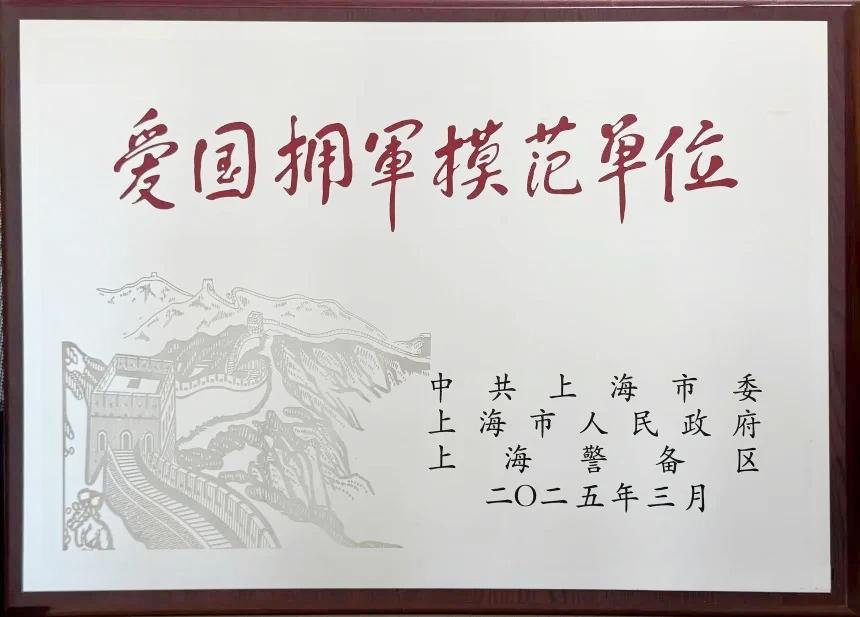 爱国拥軍模范单位
中共上海市委
上海市人民政府
上海警备区
二〇二五年三月